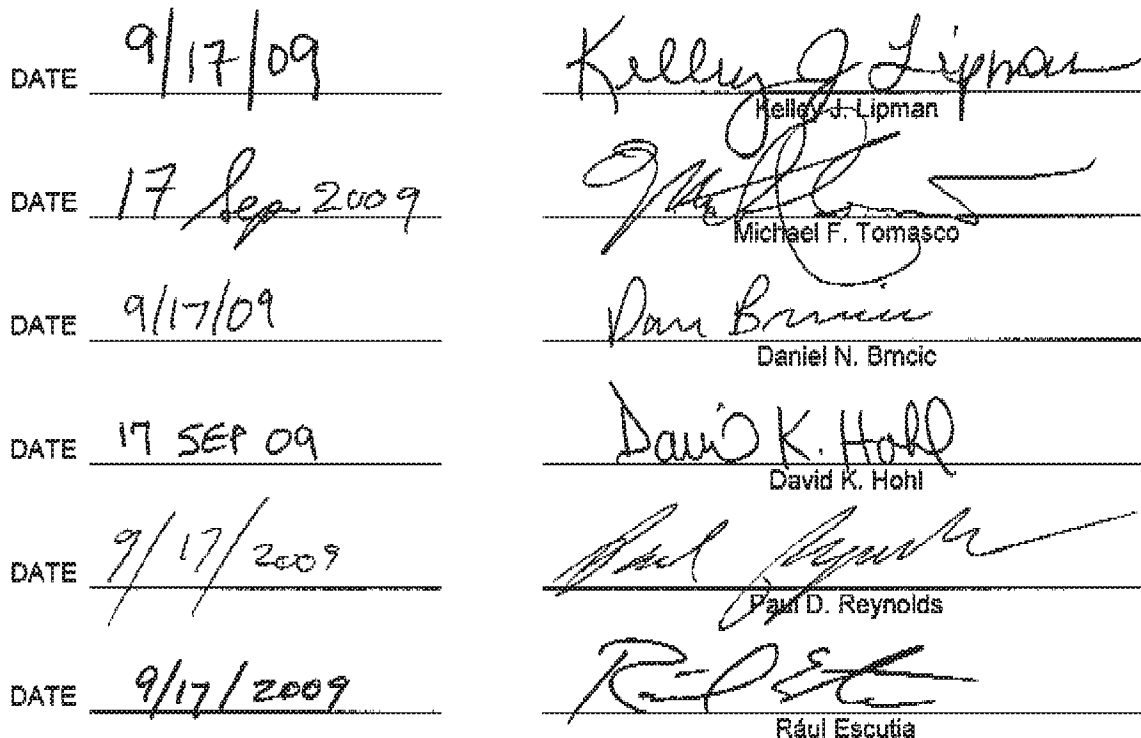 DATE 9/17/09 Kelley J Lipman
Kelley J. Lipman
DATE 17 Sep 2009
Michael F. Tomasco
DATE 9/17/09 Dan Brncic
Daniel N. Brncic
DATE 17 SEP 09 David K. Hohl
David K. Hohl
DATE 9/17/2009 Paul Reynolds
Paul D. Reynolds
DATE 9/17/2009
Rául Escutia